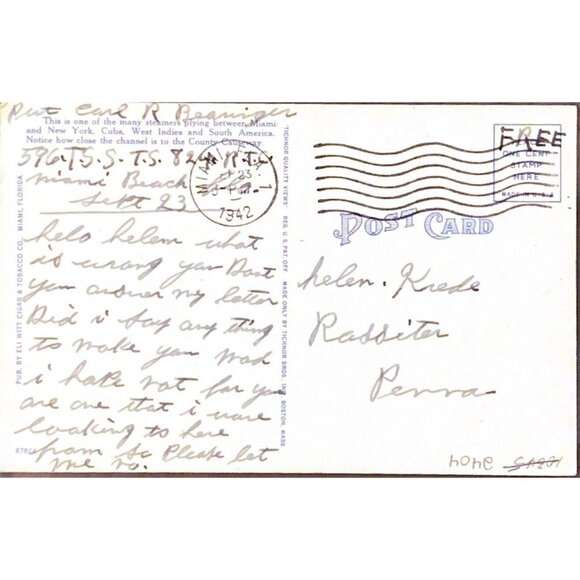 Pvt Carl R Beaninger
This is one of the many steamers plying between Miami
and New York, Cuba, West Indies and South America.
Notice how close the channel is to the County Causeway.
596 T.S.S. T.S. 82
Miami Beach
Sept 23
helo helen what
is wrong you Dont
you answer my letter
Did i say any thing
to make you mad
i hope not for you
are one that i ware
looking to here
from so Please let
me no.
PUB. BY ELI WITT CIGAR & TOBACCO CO., MIAMI, FLORIDA
TICHNOR QUALITY VIEWS REG. U.S. PAT. OFF. MADE ONLY BY TICHNOR BROS. INC., BOSTON, MASS.
MIAMI
23
1942
FREE
ONE CENT
STAMP
HERE
MADE IN U.S.A.
POST CARD
helen. Krede
Rossiter
Penna